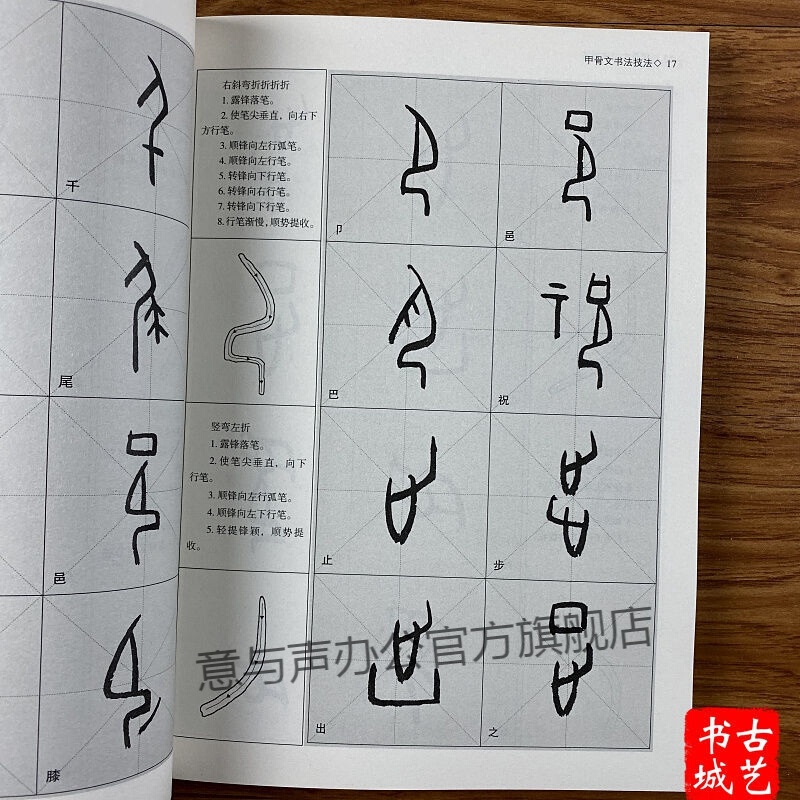 千
尾
邑
膝
甲骨文书法技法◇ 17
右斜弯折折折折
1. 露锋落笔。
2. 使笔尖垂直，向右下
方行笔。
3. 顺锋向左行弧笔。
4. 顺锋向左行笔。
5. 转锋向下行笔。
6. 转锋向右行笔。
7. 转锋向下行笔。
8. 行笔渐慢，顺势提收。
竖弯左折
1. 露锋落笔。
2. 使笔尖垂直，向下
行笔。
3. 顺锋向左行弧笔。
4. 顺锋向左下行笔。
5. 轻提锋颖，顺势提
收。
卩
邑
巴
祝
止
步
出
之
意与声办公官方旗舰店
古艺
书城